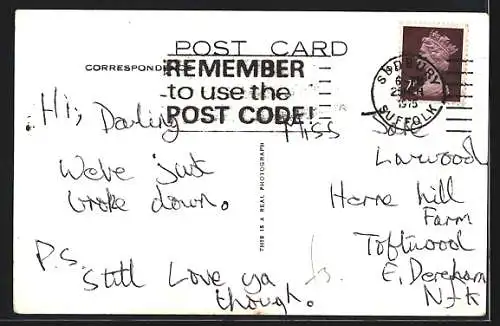 POST CARD
CORRESPONDENCE
REMEMBER
to use the
POST CODE!
SUDBURY
SUFFOLK
1975
Hi, Darling
We've just
broke down.
P.S.
Still Love ya
though.
THIS IS A REAL PHOTOGRAPH
Miss
Larwood
Herne hill
Farm
Toftwood
E. Dereham
Nfk